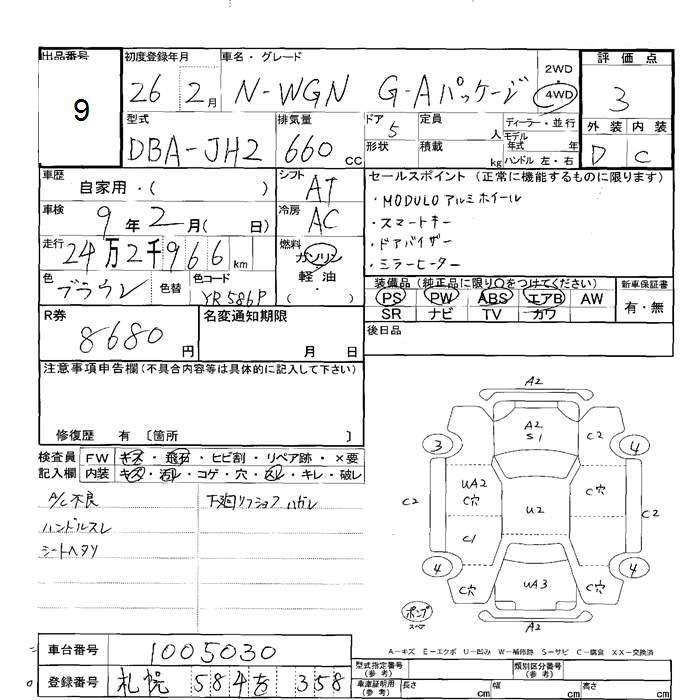 出品番号
9
初度登録年月
26 2月
車名・グレード
N-WGN G・Aパッケージ
2WD
4WD
評価点
3
外装 内装
D C
型式
DBA-JH2
排気量
660 cc
ドア
5
形状
定員 人
積載 kg
ディーラー・並行
モデル
年式 年
ハンドル 左・右
車歴
自家用・( )
シフト
AT
車検
9年2月( 日)
冷房
AC
走行
24万2千966km
燃料
ガソリン
軽油
・
( )
色
ブラウン
色替
色コード
YR586P
セールスポイント (正常に機能するものに限ります)
・MODULOアルミホイール
・スマートキー
・ドアバイザー
・ミラーヒーター
装備品 (純正品に限り○をつけてください)
PS PW ABS エアB AW
SR ナビ TV カワ
新車保証書
有・無
R券
8680円
名変通知期限
月 日
後日品
注意事項申告欄(不具合内容等は具体的に記入して下さい)
修復歴 有 〔箇所 〕
検査員 FW キズ・飛石・ヒビ割・リペア跡・×要
記入欄 内装 キズ・汚レ・コゲ・穴・スレ・キレ・破レ
A/C不良
ハンドルスレ
シートヘタリ
下廻リ ハガレ
A2
A2
S1
C2
3
4
UA2
C穴
C穴
C2
U2
C2
C1
4
4
C穴
UA3
C穴
ポンプ
スペア
A2
A-キズ E-エクボ U-凹み W-補修跡 S-サビ C-腐食 XX-交換済
車台番号
1005030
登録番号
札幌 584 を 358
型式指定番号
(参考)
類別区分番号
(参考)
車庫証明用
(参考)
長さ cm
幅 cm
高さ cm